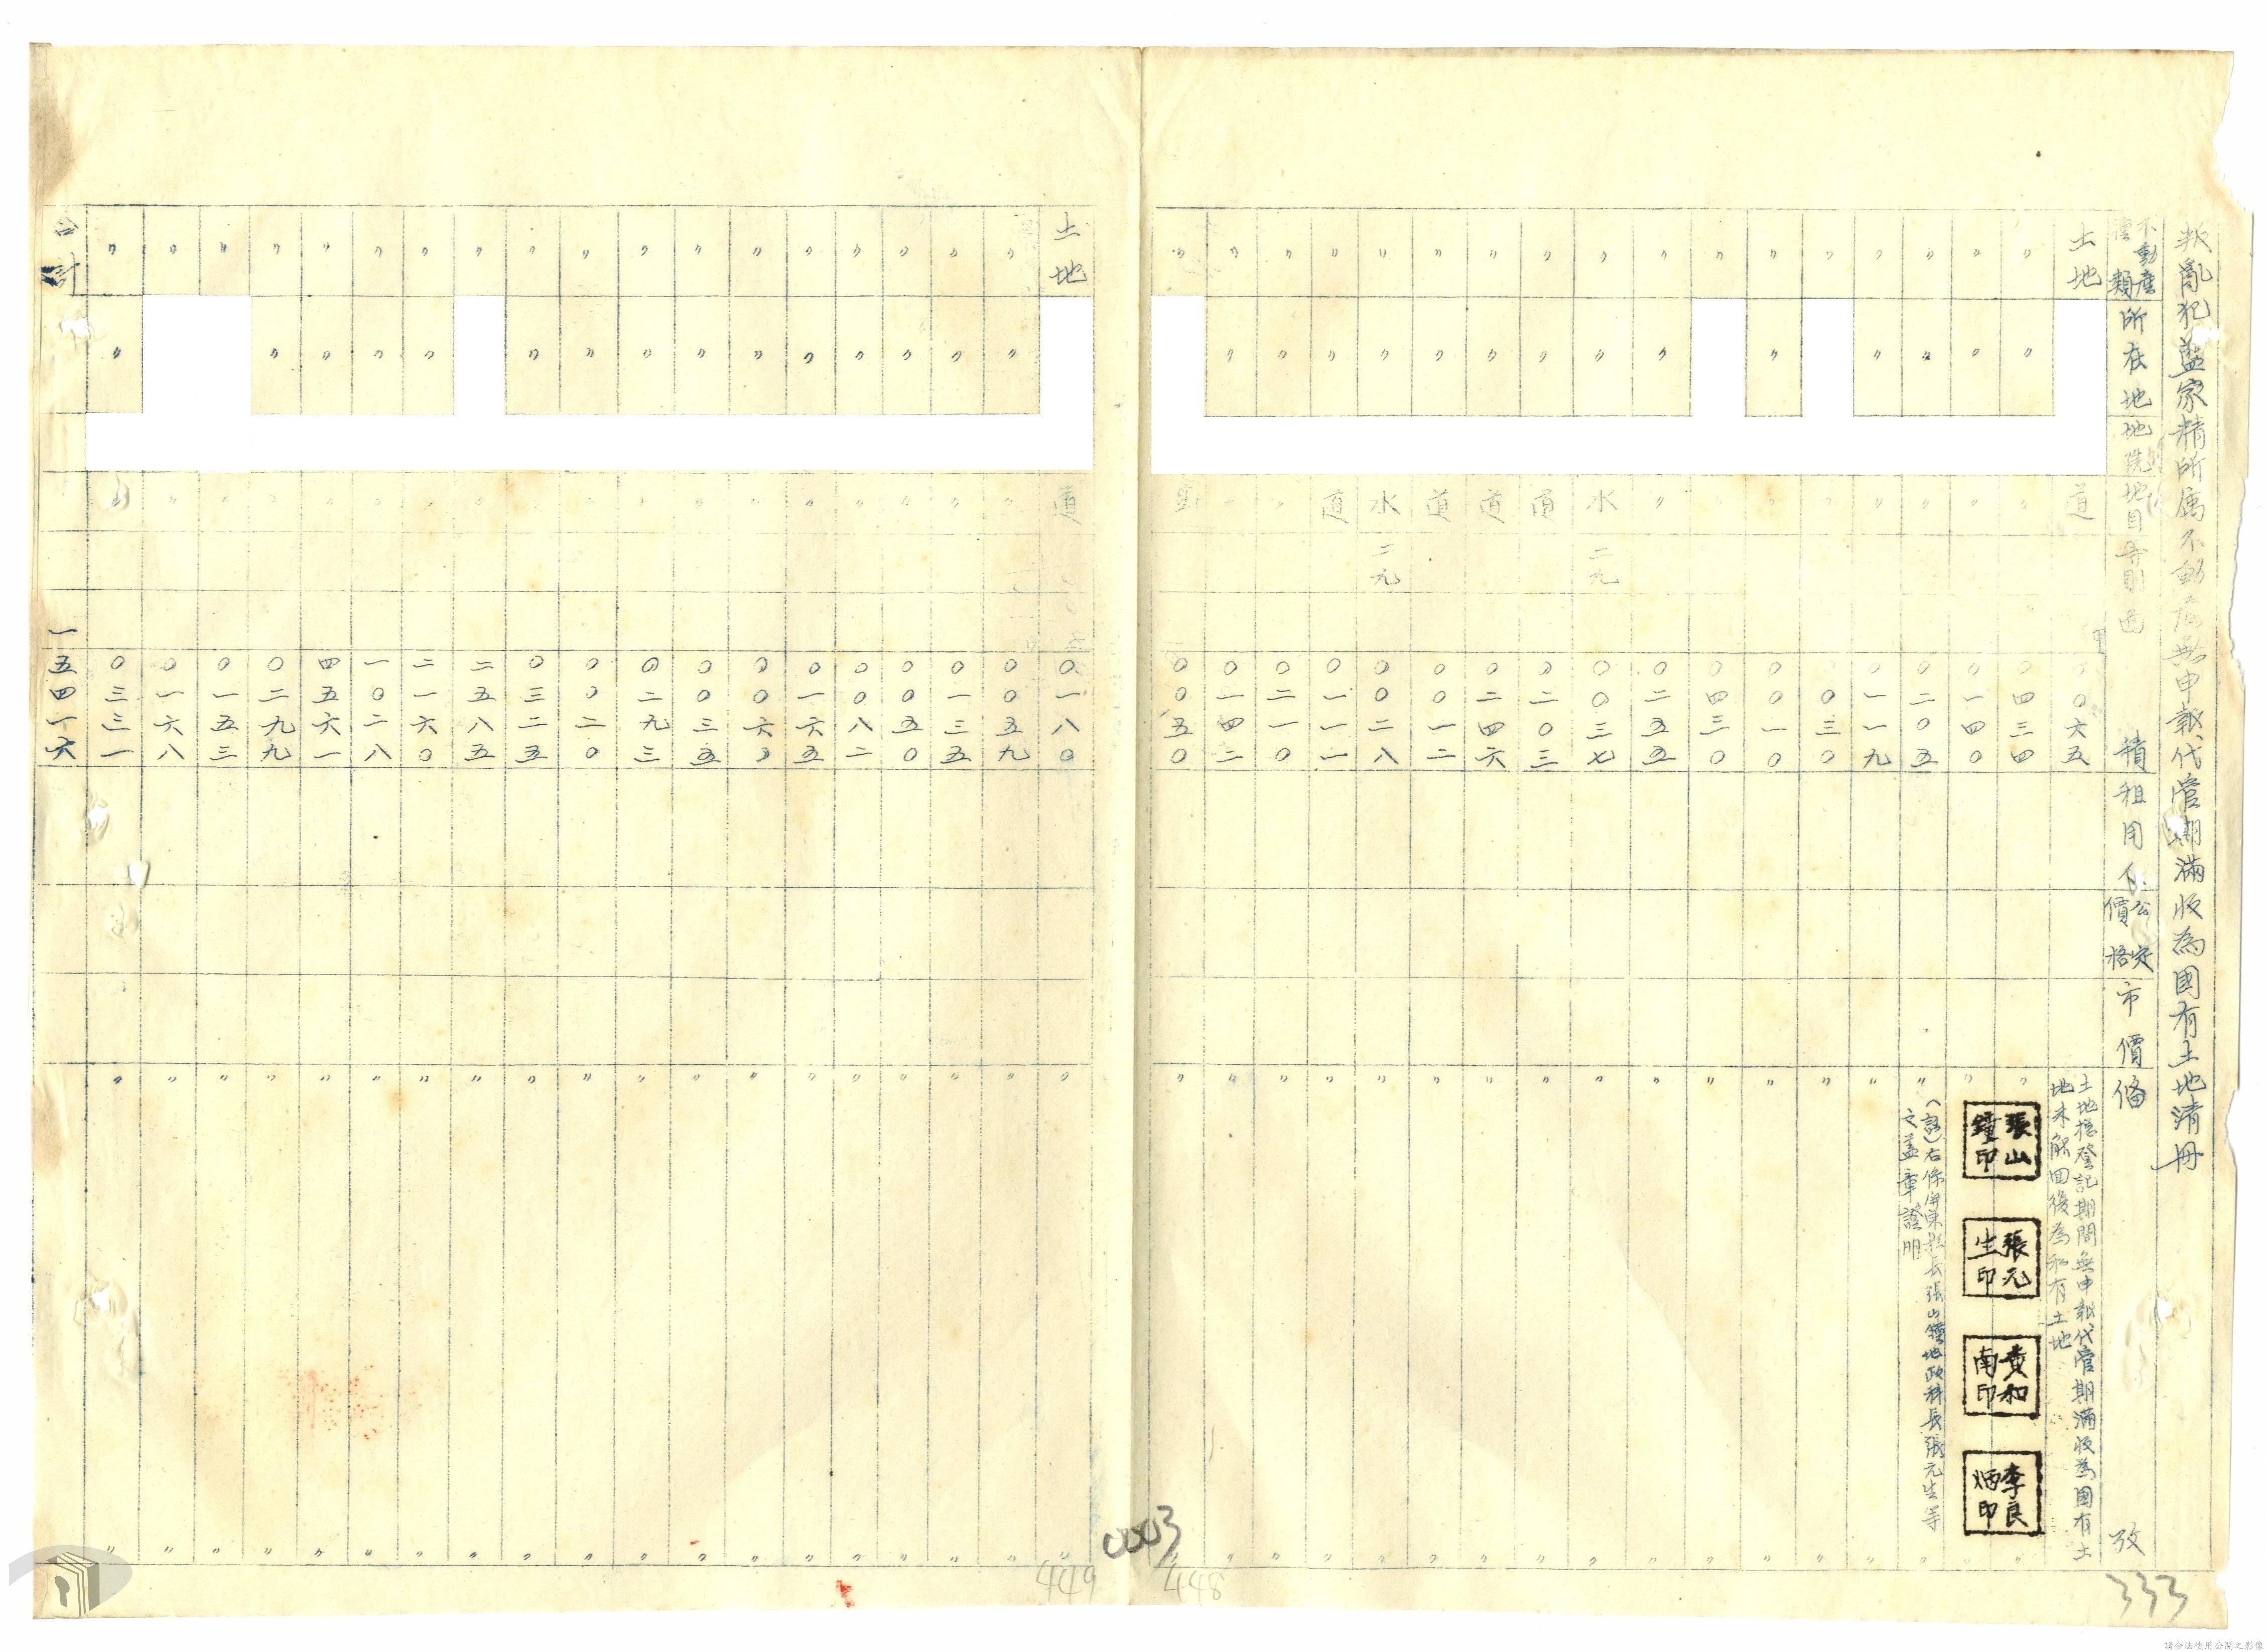 叛亂犯藍家精所屬不動產無申報代管期滿收為國有土地清冊
不動產種類 所在地 地號 地目 等則 面積 租用人 公定價格 市價 備攷
土地 道 甲 〇〇六五 土地總登記期間無申報代管期滿收為國有土地未放回後為私有土地
〃 〃 〃 〇四三四 〃 〃
〃 〃 〃 〇一四〇 〃 〃
張山鐘印
張元生印
黃和南印
李良炳印
〃 〃 〃 〇二〇五 〃 〃
(註)右係屏東縣長張山鐘地政科長張元生等之蓋章證明
〃 〃 〃 〇一一九 〃 〃
〃 〃 〇〇三〇 〃 〃
〃 〃 〃 〇〇一〇 〃 〃
〃 〃 〇四三〇 〃 〃
〃 〃 〃 〇二五五 〃 〃
〃 〃 水 二九 〇〇三七 〃 〃
〃 〃 道 〇二〇三 〃 〃
〃 〃 道 〇二四六 〃 〃
〃 〃 道 〇〇一二 〃 〃
〃 〃 水 二九 〇〇二八 〃 〃
〃 〃 道 〇一一一 〃 〃
〃 〃 〃 〇二一〇 〃 〃
〃 〃 〃 〇一四二 〃 〃
〃 〇〇五〇 〃 〃
土地 道 〇一八〇 〃 〃
〃 〃 〃 〇〇五九 〃 〃
〃 〃 〃 〇一三五 〃 〃
〃 〃 〃 〇〇五〇 〃 〃
〃 〃 〃 〇〇八二 〃 〃
〃 〃 〃 〇一六五 〃 〃
〃 〃 〃 〇〇六〇 〃 〃
〃 〃 〃 〇〇三五 〃 〃
〃 〃 〃 〇二九三 〃 〃
〃 〃 〃 〇〇二〇 〃 〃
〃 〃 〃 〇三二五 〃 〃
〃 〃 二五八五 〃 〃
〃 〃 〃 二一六〇 〃 〃
〃 〃 〃 一〇二八 〃 〃
〃 〃 〃 四五六一 〃 〃
〃 〃 〃 〇二九九 〃 〃
〃 〃 〇一五三 〃 〃
〃 〃 〇一六八 〃 〃
〃 〃 〃 〇三三一 〃 〃
合計 一五四一六
333
448
0003
449
請合法使用公開之影像